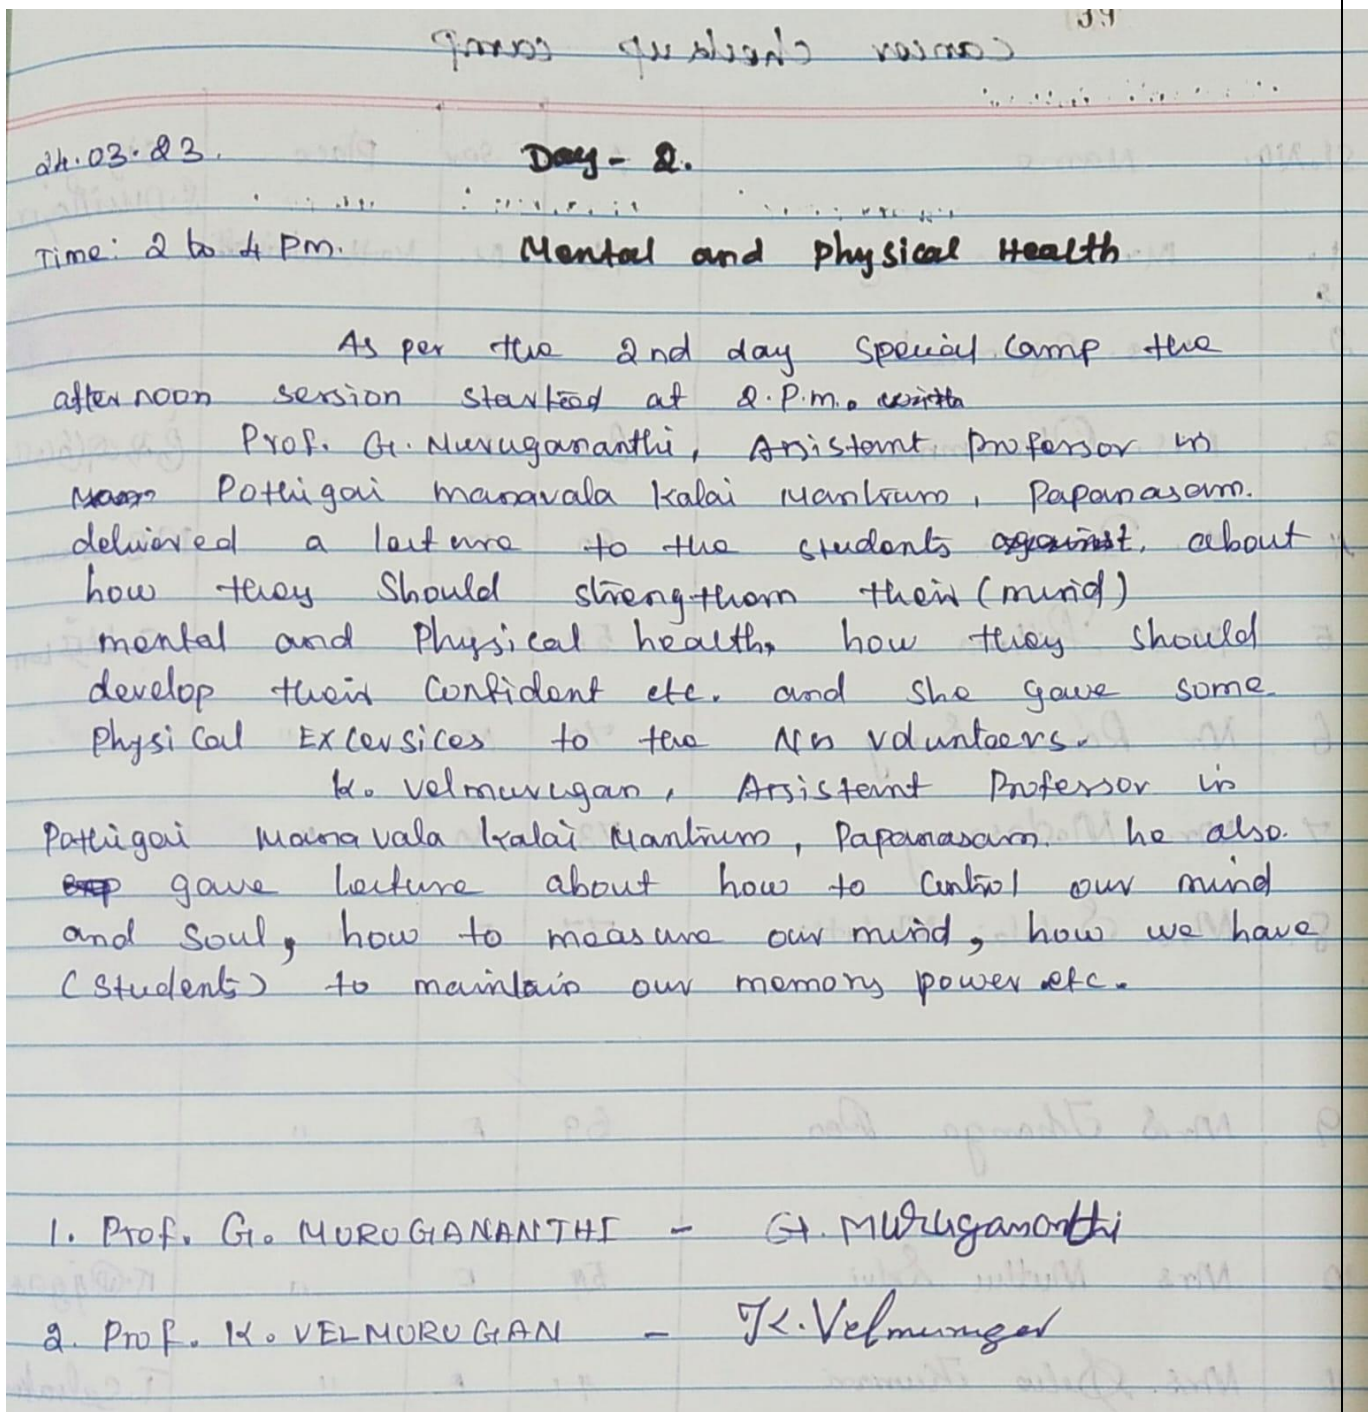 24.03.23. Day - 2.
Time: 2 to 4 Pm. Mental and Physical Health
As per the 2nd day Special Camp the
after noon session started at 2.P.m. with
Prof. G. Murugananthi, Assistant Professor in
Pothigai manavala Kalai Mantrum, Papanasam.
delivered a lecture to the students against. about
how they Should strengthern their (mind)
mental and Physical health, how they should
develop their Confident etc. and she gave some
Physical Excersices to the Nss volunteers.
K. Velmurugan, Assistant Professor in
Pothigai Manavala Kalai Mantrum, Papanasam. he also.
gave lecture about how to Control our mind
and soul, how to measure our mind, how we have
(Students) to maintain our memory power etc.
1. Prof. G. MURUGANANTHI - G. Murugananthi
2. Prof. K. VELMURUGAN - K. Velmurugan